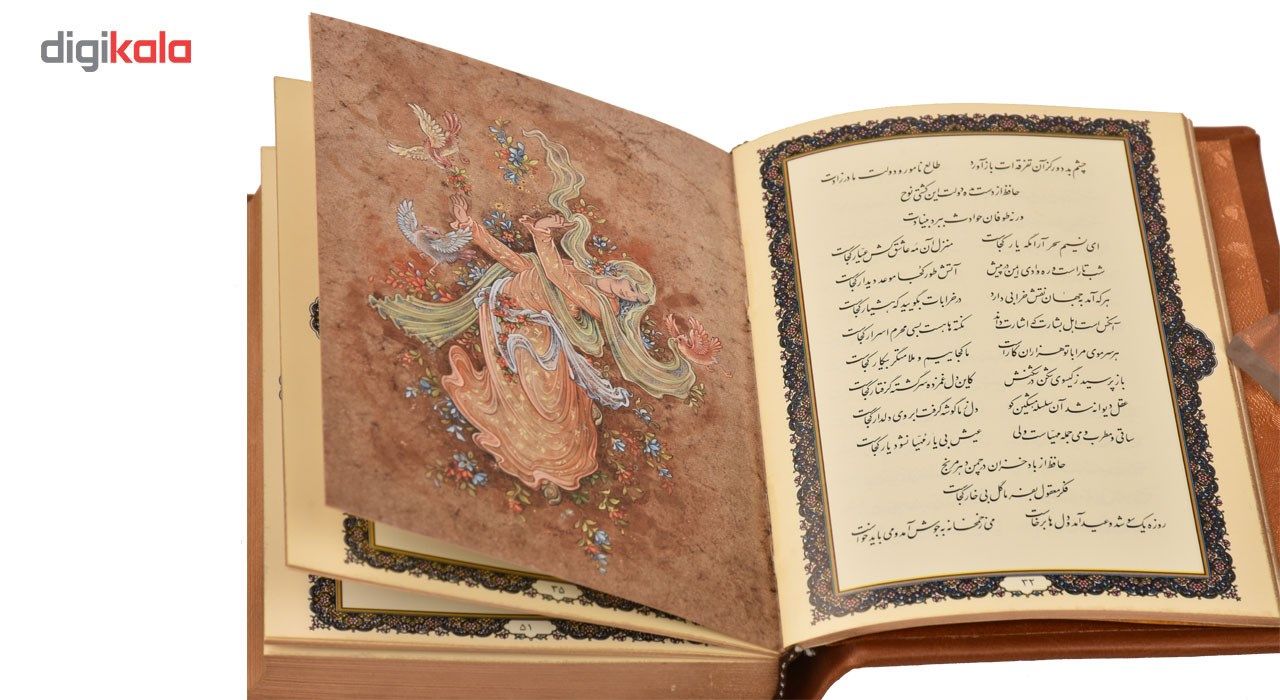 digikala
چشم بد دور کز آن تفرقه‌ات باز آورد طالع نامور و دولت مادرزادت
حافظ از دست مده دولت این کشتی نوح
ورنه طوفان حوادث ببرد بنیادت
ای نسیم سحر آرامگه یار کجاست منزل آن مه عاشق کش عیار کجاست
شب تار است و ره وادی ایمن در پیش آتش طور کجا موعد دیدار کجاست
هر که آمد به جهان نقش خرابی دارد در خرابات بگویید که هشیار کجاست
آنکس است اهل بشارت که اشارت داند نکته‌ها هست بسی محرم اسرار کجاست
هر سر موی مرا با تو هزاران کار است ما کجاییم و ملامتگر بیکار کجاست
باز پرسید ز گیسوی شکن در شکنش کاین دل غمزده سرگشته گرفتار کجاست
عقل دیوانه شد آن سلسله مشکین کو دل ز ما گوشه گرفت ابروی دلدار کجاست
ساقی و مطرب و می جمله مهیاست ولی عیش بی یار مهیا نشود یار کجاست
حافظ از باد خزان در چمن دهر مرنج
فکر معقول بفرما گل بی خار کجاست
روزه یکسو شد و عید آمد و دلها برخاست می ز خمخانه به جوش آمد و می باید خواست
۳۲
۳۵
۵۱